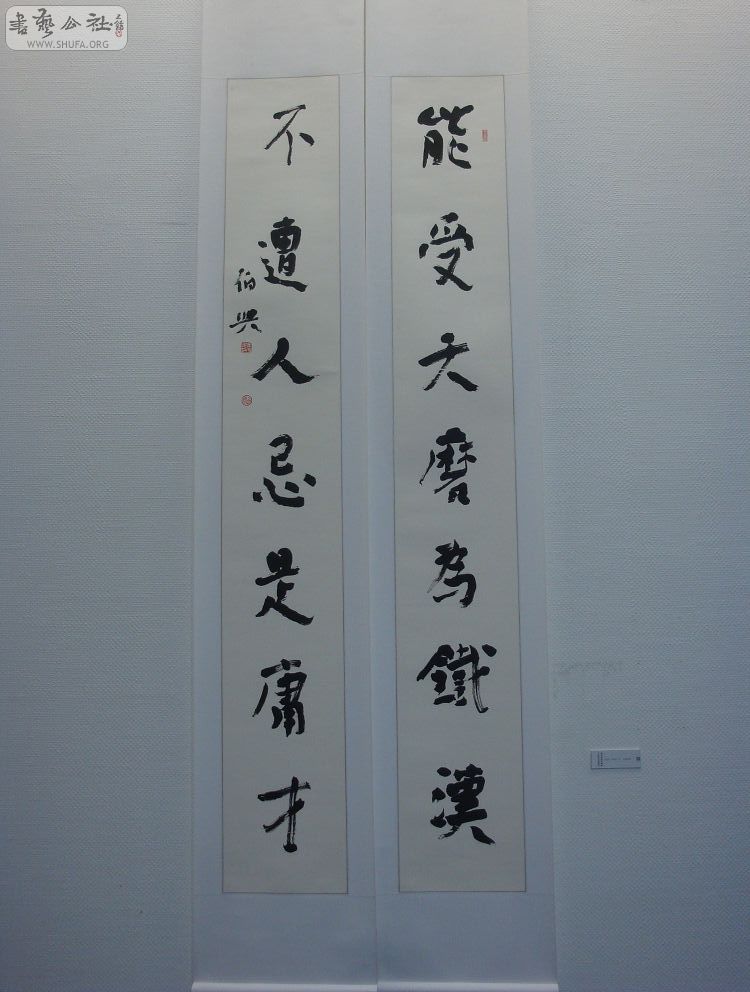 能受天磨為鐵漢
不遭人忌是庸才
伯興
書藝公社
WWW.SHUFA.ORG